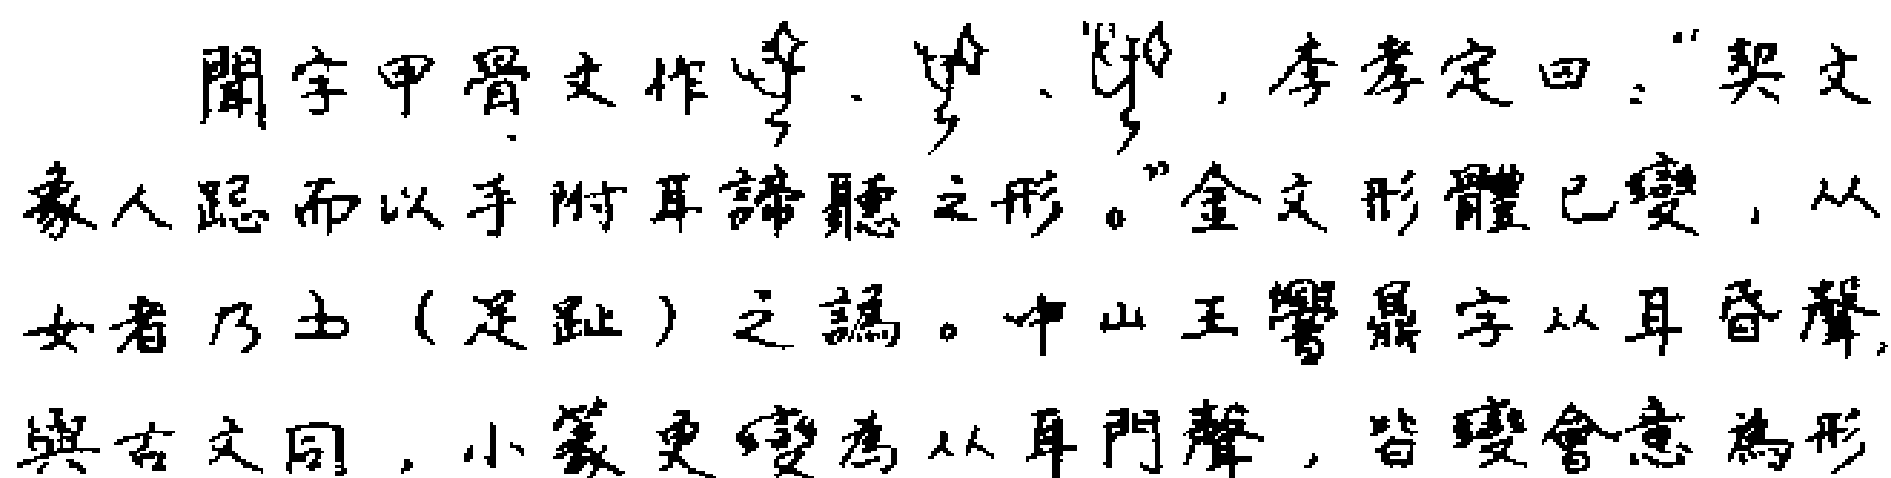 聞字甲骨文作、、，李孝定曰：“契文
象人跽而以手附耳諦聽之形。”金文形體已變，从
女者乃止（足趾）之譌。中山王鼎字从耳昏聲，
與古文同，小篆更變為从耳門聲，皆變會意為形